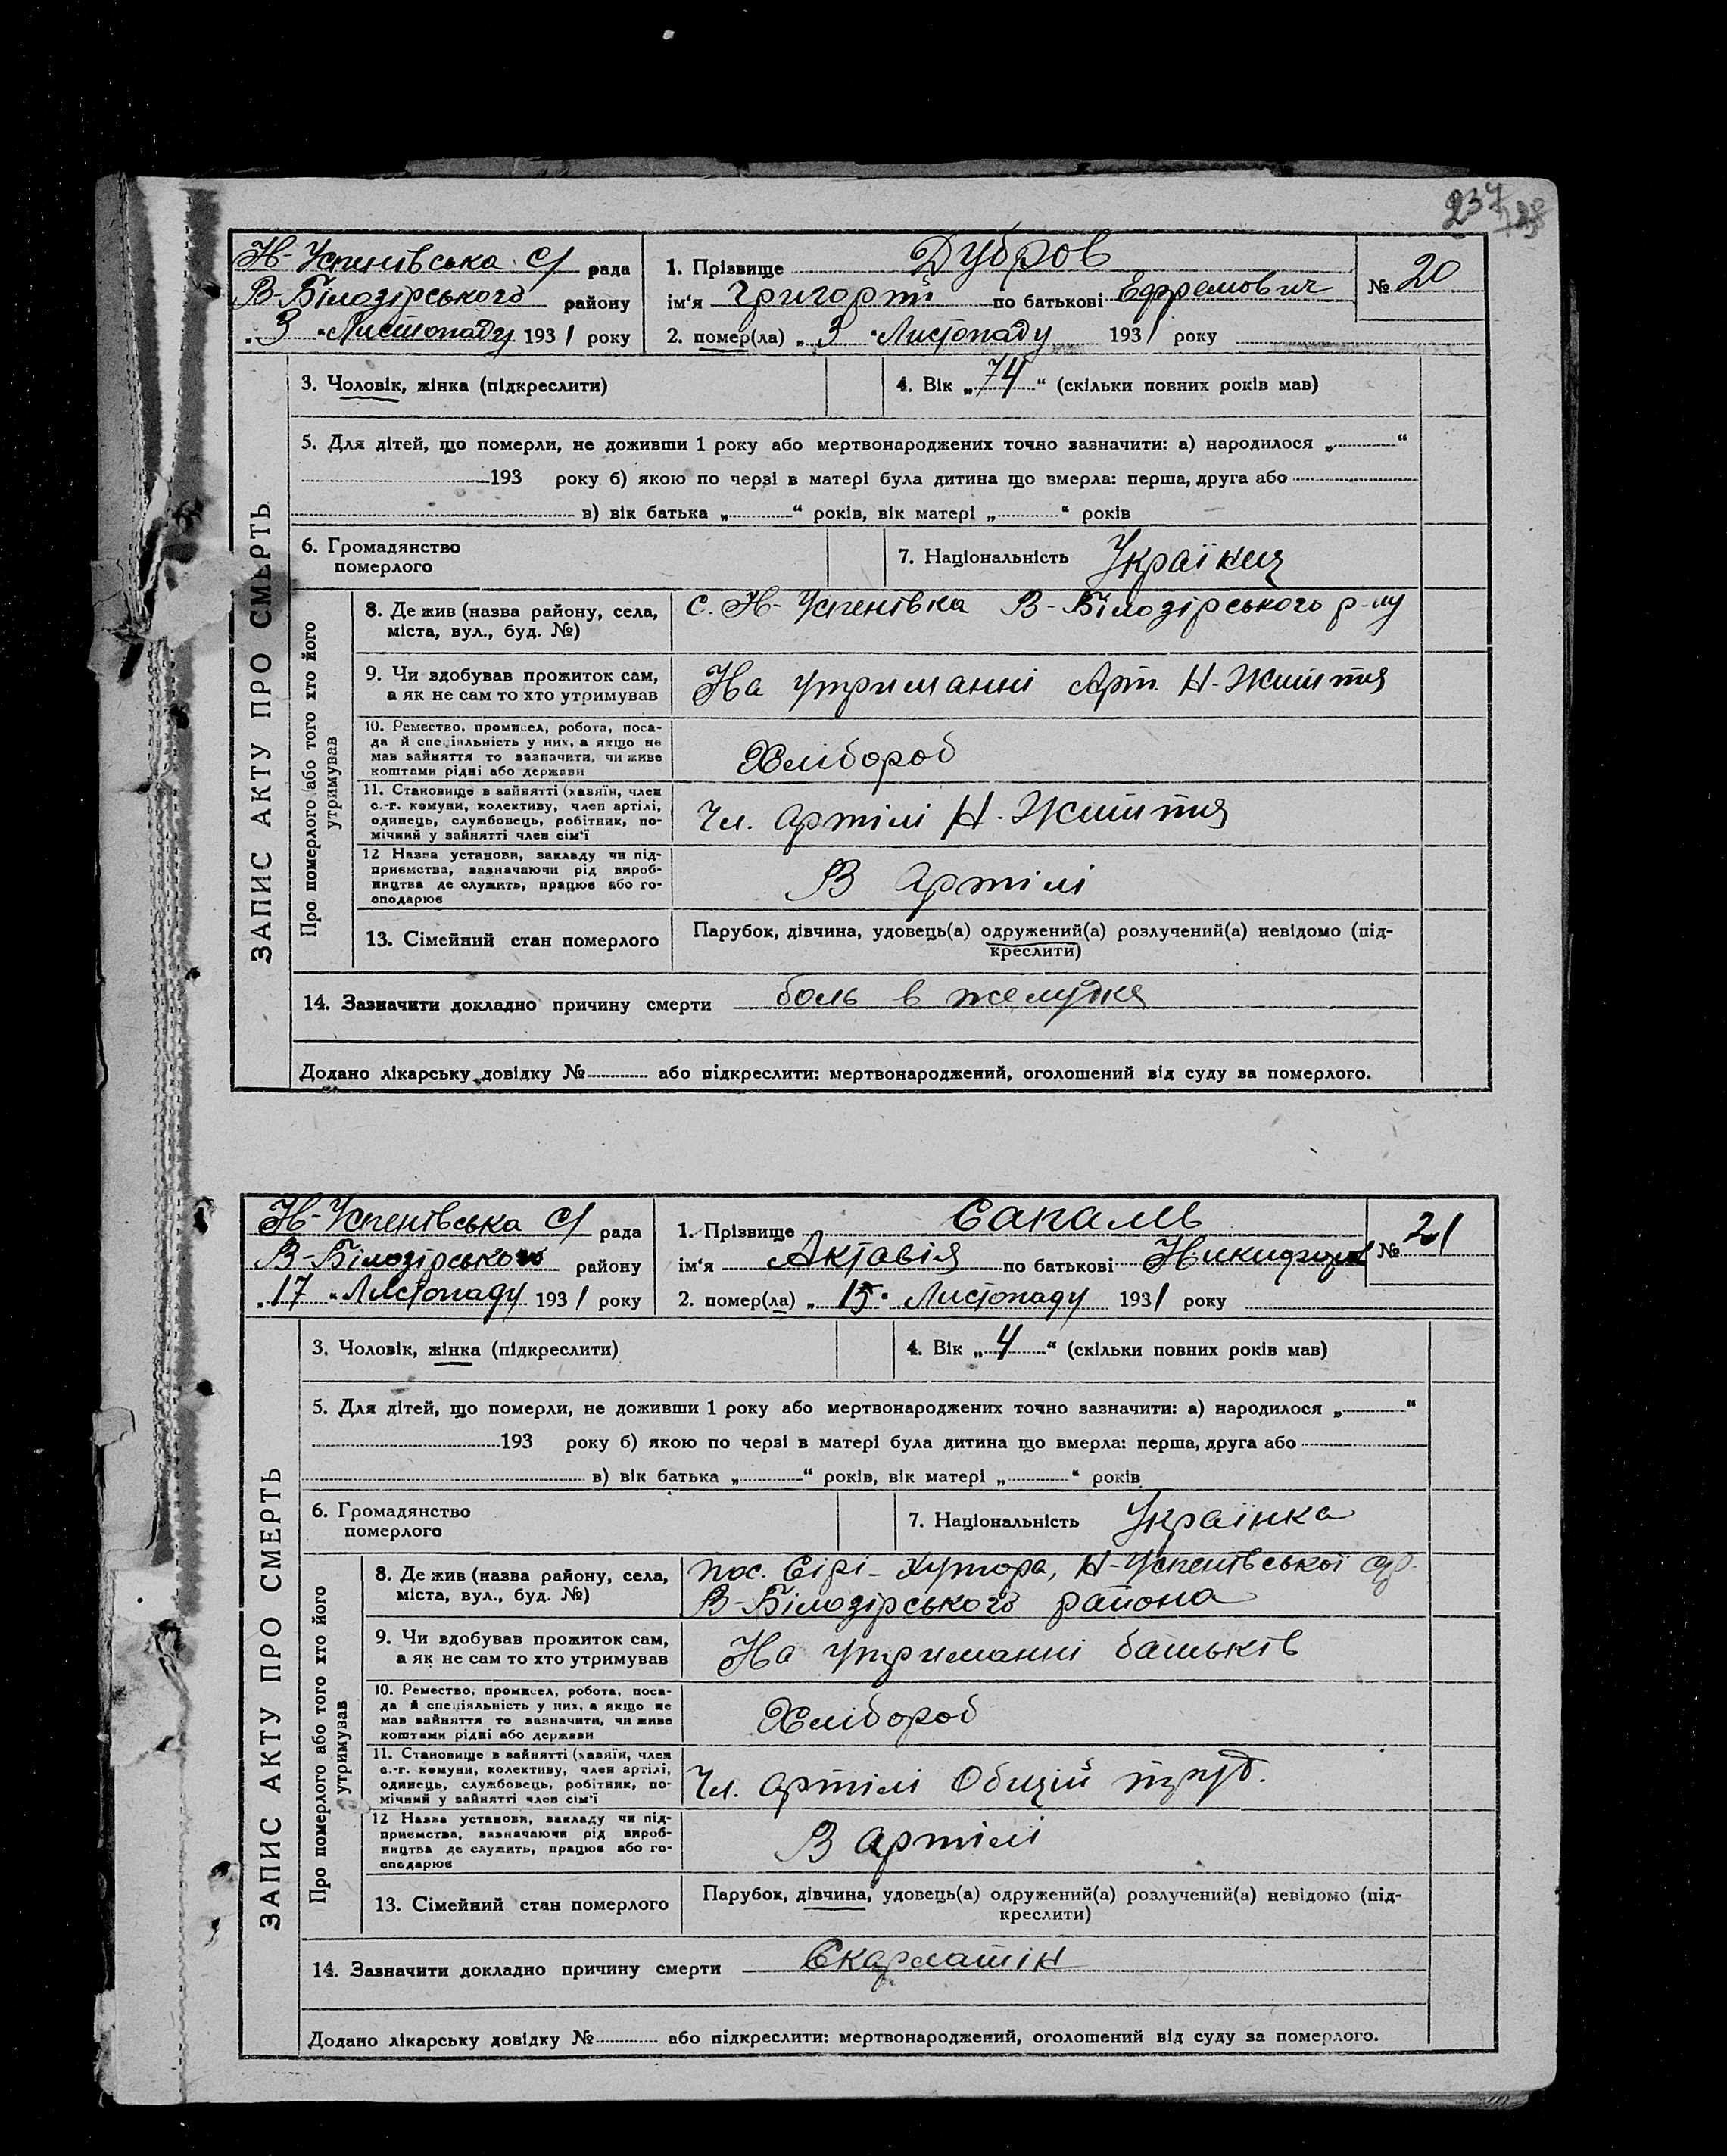 237
Н-Успенівська с/ рада
В-Білозірського району
„3“ Листопаду 1931 року
1. Прізвище Дубров
ім‘я Григорій по батькові Ефремович
№ 20
2. помер(ла) „3“ Листопаду 1931 року
ЗАПИС АКТУ ПРО СМЕРТЬ
3. Чоловік, жінка (підкреслити)
4. Вік „74“ (скільки повних років мав)
5. Для дітей, що померли, не доживши 1 року або мертвонароджених точно зазначити: а) народилося „ “
193 року б) якою по черзі в матері була дитина що вмерла: перша, друга або
в) вік батька „ “ років, вік матері „ “ років
6. Громадянство
померлого
7. Національність Українць
Про померлого або того хто його
утримував
8. Де жив (назва району, села,
міста, вул., буд. №)
с. Н-Успенівка В-Білозірського р-ну
9. Чи здобував прожиток сам,
а як не сам то хто утримував
На утриманні Арт. Н-Життя
10. Ремество, промисел, робота, поса-
да й спеціяльність у них, а якщо не
мав зайняття то зазначити, чи живе
коштами рідні або держави
Хлібороб
11. Становище в зайнятті (хазяїн, член
с.-г. комуни, колективу, член артілі,
одинець, службовець, робітник, по-
мічний у зайнятті член сім‘ї
Чл. артілі Н-Життя
12 Назва установи, закладу чи під-
приємства, зазначаючи рід вироб-
ництва де служить, працює або го-
сподарює
В Артілі
13. Сімейний стан померлого
Парубок, дівчина, удовець(а) одружений(а) розлучений(а) невідомо (під-
креслити)
14. Зазначити докладно причину смерти боль в желудке
Додано лікарську довідку № або підкреслити: мертвонароджений, оголошений від суду за померлого.
Н-Успенівська с/ рада
В-Білозірського району
„17“ Листопаду 1931 року
1. Прізвище Сапаль
ім‘я Актавія по батькові
№ 21
2. помер(ла) „15“ Листопаду 1931 року
ЗАПИС АКТУ ПРО СМЕРТЬ
3. Чоловік, жінка (підкреслити)
4. Вік „4“ (скільки повних років мав)
5. Для дітей, що померли, не доживши 1 року або мертвонароджених точно зазначити: а) народилося „ “
193 року б) якою по черзі в матері була дитина що вмерла: перша, друга або
в) вік батька „ “ років, вік матері „ “ років
6. Громадянство
померлого
7. Національність Українка
Про померлого або того хто його
утримував
8. Де жив (назва району, села,
міста, вул., буд. №)
пос. Сірі-Хутора, Н-Успенівської с/р.
В-Білозірського района
9. Чи здобував прожиток сам,
а як не сам то хто утримував
На утриманні батьків
10. Ремество, промисел, робота, поса-
да й спеціяльність у них, а якщо не
мав зайняття то зазначити, чи живе
коштами рідні або держави
Хлібороб
11. Становище в зайнятті (хазяїн, член
с.-г. комуни, колективу, член артілі,
одинець, службовець, робітник, по-
мічний у зайнятті член сім‘ї
Чл. артілі Общій труд.
12 Назва установи, закладу чи під-
приємства, зазначаючи рід вироб-
ництва де служить, працює або го-
сподарює
В артілі
13. Сімейний стан померлого
Парубок, дівчина, удовець(а) одружений(а) розлучений(а) невідомо (під-
креслити)
14. Зазначити докладно причину смерти Скарлатін
Додано лікарську довідку № або підкреслити: мертвонароджений, оголошений від суду за померлого.